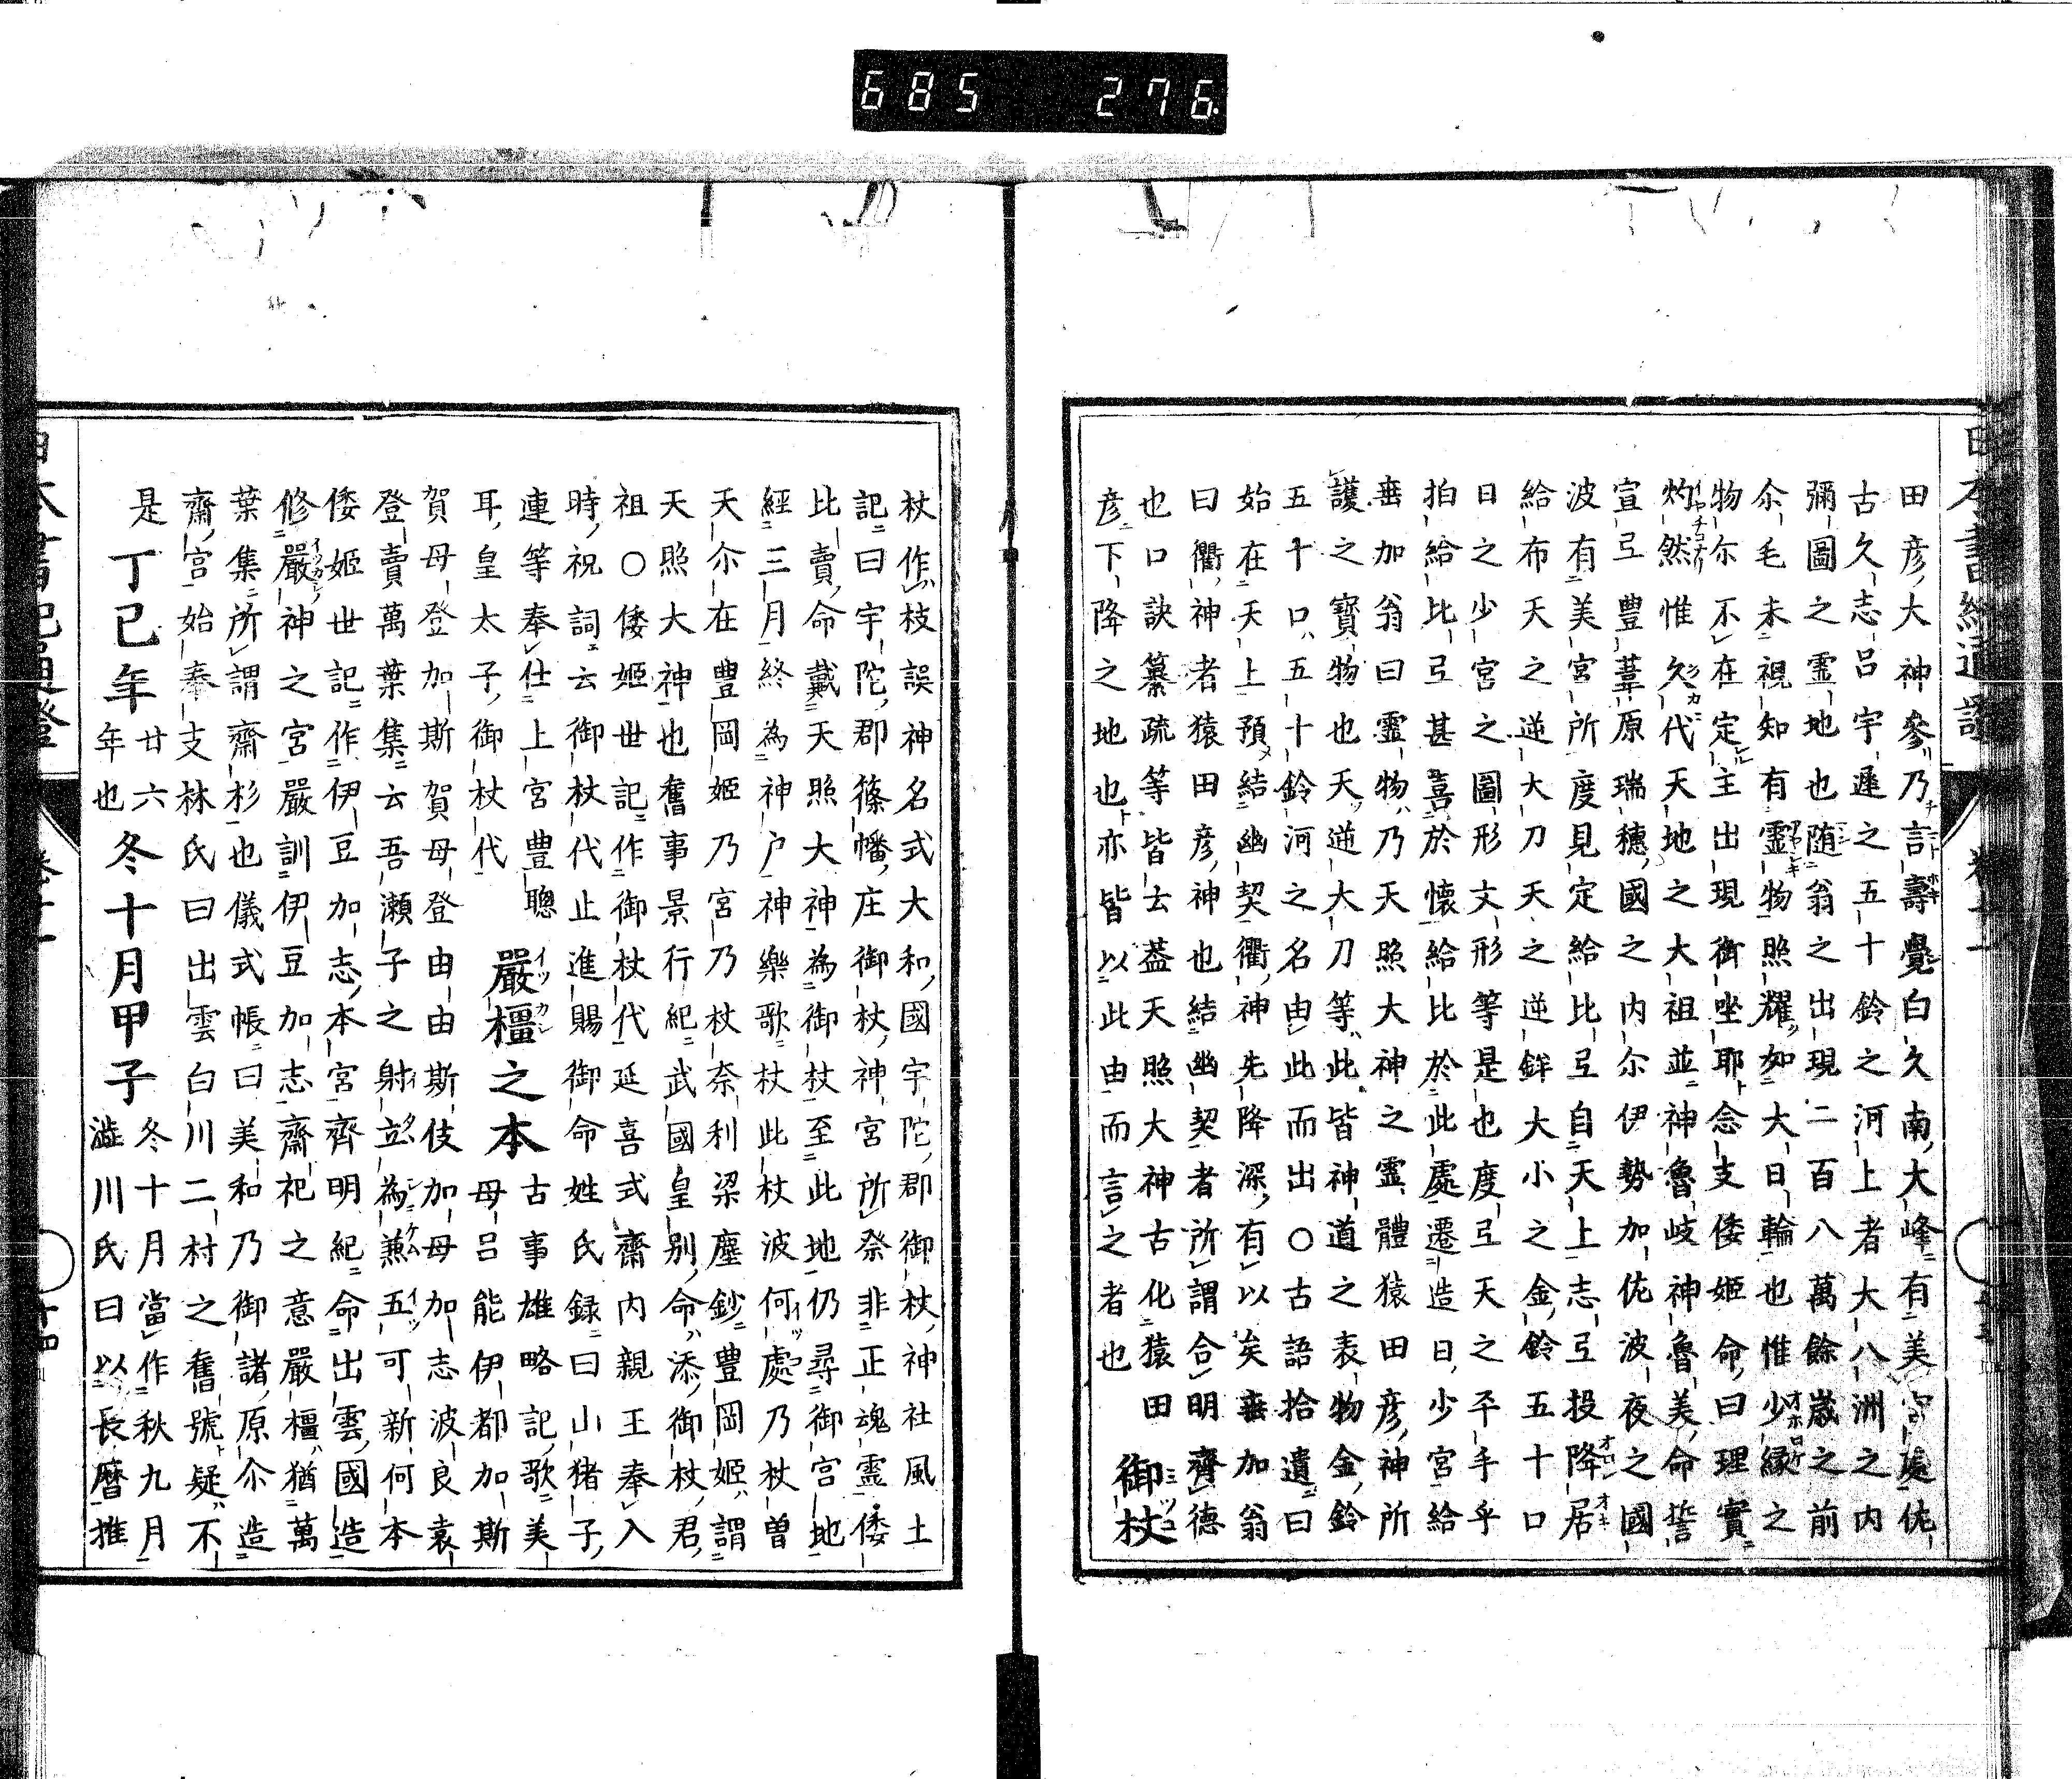 685 276
田彦大神參乃言壽覺白久南大峰有美宮處佐
古久志呂宇遲之五十鈴之河上者大八洲之内
彌圖之霊地也随翁之出現二百八萬餘歳之前
尒毛未視知有霊物照耀如大日輪也惟少縁之
物尓不在定主出現御坐耶念支倭姫命曰理實
灼然惟久代天地之大祖並神魯岐神魯美命誓
宣弖豊葦原瑞穗國之内尓伊勢加佐波夜之國
波有美宮所度見定給比弖自天上志弖投降居
給布天之逆大刀天之逆鉾大小之金鈴五十口
日之少宮之圖形文形等是也度弖天之平手乎
拍給比弖甚喜於懐給比於此處遷造日少宮給
垂加翁曰霊物乃天照大神之霊體猿田彦神所
護之寳物也天逆大刀等此皆神道之表物金鈴
五十口五十鈴河之名由此而出〇古語拾遺曰
始在天上預結幽契衢神先降深有以矣垂加翁
曰衢神者猿田彦神也結幽契者所謂合明齊德
也口訣纂疏等皆云蓋天照大神古化猿田
彦下降之地也亦皆以此由而言之者也 御杖
杖作枝誤神名式大和國宇陀郡御杖神社風土
記曰宇陀郡篠幡庄御杖神宮所祭非正魂霊倭
比賣命戴天照大神為御杖至此地仍尋御宮地
經三月終為神户神樂歌杖此杖波何處乃杖曽
天尒在豊岡姫乃宮乃杖奈利梁塵鈔豊岡姫謂
天照大神也舊事景行紀武國皇别命添御杖君
祖〇倭姫世記作御杖代延喜式齋内親王奉入
時祝詞云御杖代止進賜御命姓氏録曰山猪子
連等奉仕上宮豊聰古事雄略記歌美
耳皇太子御杖代 嚴橿之本 母呂能伊都加斯
賀母登加斯賀母登由由斯伎加母加志波良袁
登賣萬葉集云吾瀬子之射立為兼五可新何本
倭姫世記作伊豆加志本宮齊明紀命出雲國造
修嚴神之宮嚴訓伊豆加志齋祀之意嚴橿猶萬
葉集所謂齋杉也儀式帳曰美和乃御諸原尒造
齋宮始奉支林氏曰出雲白川二村之舊號疑不
是 丁巳年 廿六年也 冬十月甲子 冬十月當作秋九月澁川氏曰以長暦推